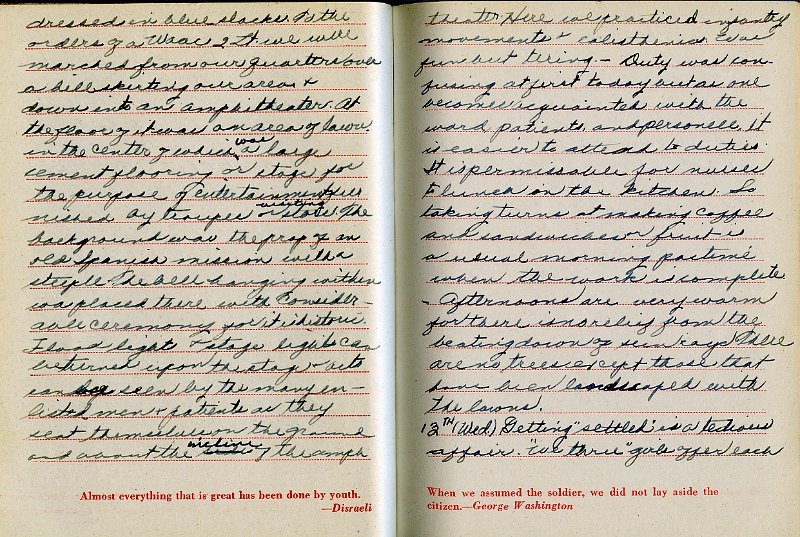 dressed in blue slacks. To the
orders of a Waac 2 Lt we were
marched from our quarters over
a hill skirting our area &
down into an amphitheater. At
the floor of it was an area of lawn
in the center of which was a large
cement flooring or stage for
the purpose of entertainment fur
nished by troupes or visiting stars. The
background was the prop of an
old Spanish mission with a
steeple. The bell hanging within
was placed there with consider-
able ceremony for it is historic
Flood lights & stage lights can
be turned upon the stage & acts
can be seen by the many en-
listed men & patients as they
seat themselves on the ground
and about the incline of the amph
Almost everything that is great has been done by youth.
—Disraeli
theater. Here we practiced infantry
movements & calisthenics. Was
fun but tiring - Duty was con-
fusing at first today but as one
becomes acquainted with the
ward, patients, and personell, it
is easier to attend to duties.
It is permissable for nurses
to lunch in the kitchen. So
taking turns at making coffee
and sandwiches or fruit is
a usual morning pastime
when the work is complete
- Afternoons are very warm
for there is no relief from the
beating down of sun rays. There
are no trees except those that
have been landscaped with
the lawns.
12TH (Wed) Getting "settled" is a tedious
affair. "We three" girls offer each
When we assumed the soldier, we did not lay aside the
citizen.—George Washington